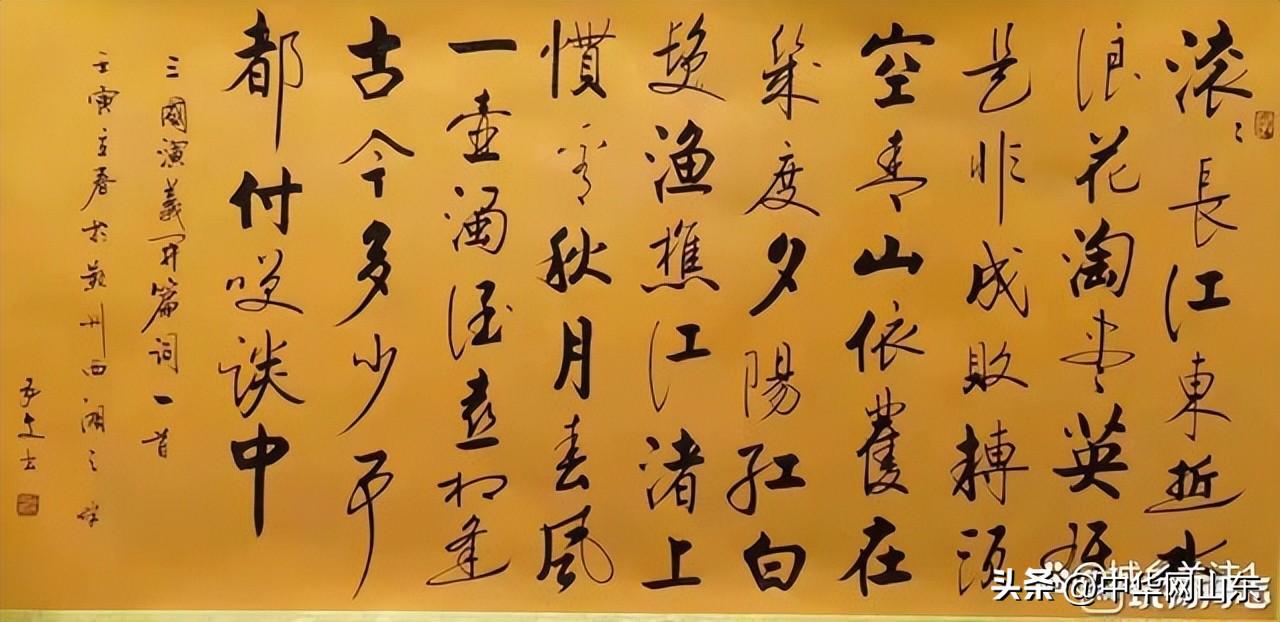 滚〻長江東逝水
浪花淘尽英雄
是非成敗轉頭
空青山依舊在
幾度夕陽红白
髮渔樵江渚上
慣看秋月春風
一壺濁酒喜相逢
古今多少事
都付笑談中
三國演義開篇詞一首
壬寅立春於潁州西湖之畔
头条@中华网山东